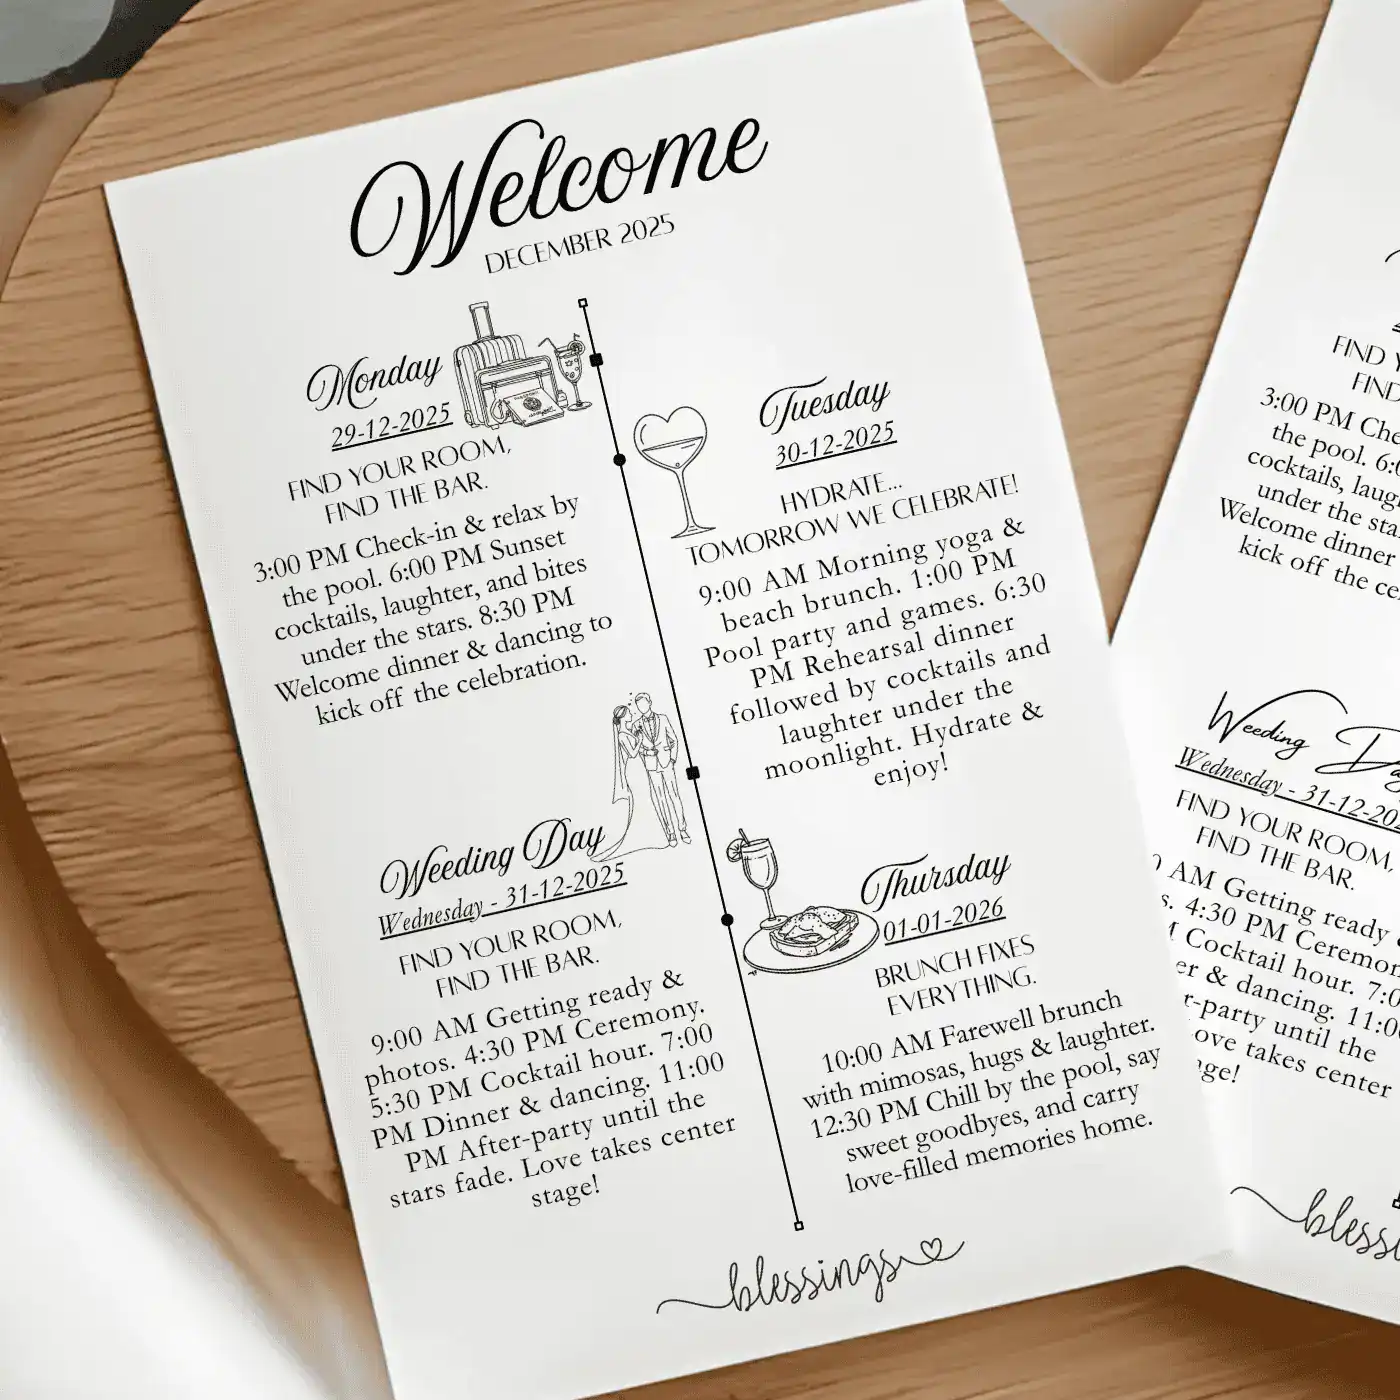 Welcome
DECEMBER 2025
Monday
29-12-2025
FIND YOUR ROOM,
FIND THE BAR.
3:00 PM Check-in & relax by
the pool. 6:00 PM Sunset
cocktails, laughter, and bites
under the stars. 8:30 PM
Welcome dinner & dancing to
kick off the celebration.
Tuesday
30-12-2025
HYDRATE...
TOMORROW WE CELEBRATE!
9:00 AM Morning yoga &
beach brunch. 1:00 PM
Pool party and games. 6:30
PM Rehearsal dinner
followed by cocktails and
laughter under the
moonlight. Hydrate &
enjoy!
Weeding Day
Wednesday - 31-12-2025
FIND YOUR ROOM,
FIND THE BAR.
9:00 AM Getting ready &
photos. 4:30 PM Ceremony.
5:30 PM Cocktail hour. 7:00
PM Dinner & dancing. 11:00
PM After-party until the
stars fade. Love takes center
stage!
Thursday
01-01-2026
BRUNCH FIXES
EVERYTHING.
10:00 AM Farewell brunch
with mimosas, hugs & laughter.
12:30 PM Chill by the pool, say
sweet goodbyes, and carry
love-filled memories home.
blessings
FIND
FIND
3:00 PM
the pool.
cocktails,
under the
Welcome dinner
kick off the
Weeding
Wednesday - 31-12-
FIND YOUR ROOM,
FIND THE BAR.
AM Getting ready
4:30 PM
Cocktail hour.
& dancing.
until the
takes center